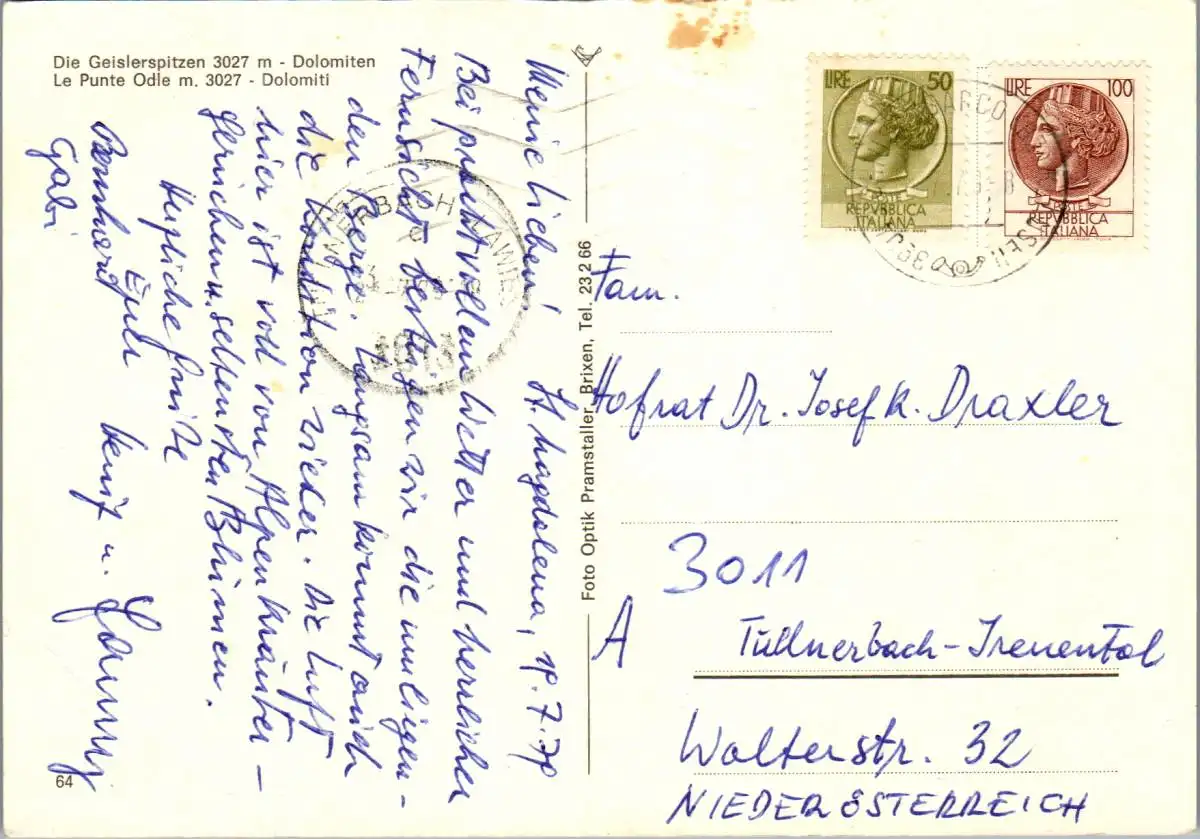 Die Geislerspitzen 3027 m - Dolomiten
Le Punte Odle m. 3027 - Dolomiti
Meine Lieben! St. Magdalena,
Bei prachtvollem Wetter und herrlicher
Fernsicht besteigen wir die umliegen-
den Berge. Langsam kommt auch
die Kondition wieder. Die Luft
hier ist voll von Alpenkräuter-
gerüchen u. seltensten Blumen.
Herzliche Grüße
Eure
Bernhard
Gabi
64
Foto Optik Pramstaller, Brixen, Tel. 23266
LIRE 50
POSTE
REPVBBLICA
ITALIANA
LIRE 100
POSTE
REPVBBLICA
ITALIANA
Fam.
Hofrat Dr. Josef K. Draxler
3011
A Tullnerbach-Irenental
Walterstr. 32
NIEDERÖSTERREICH